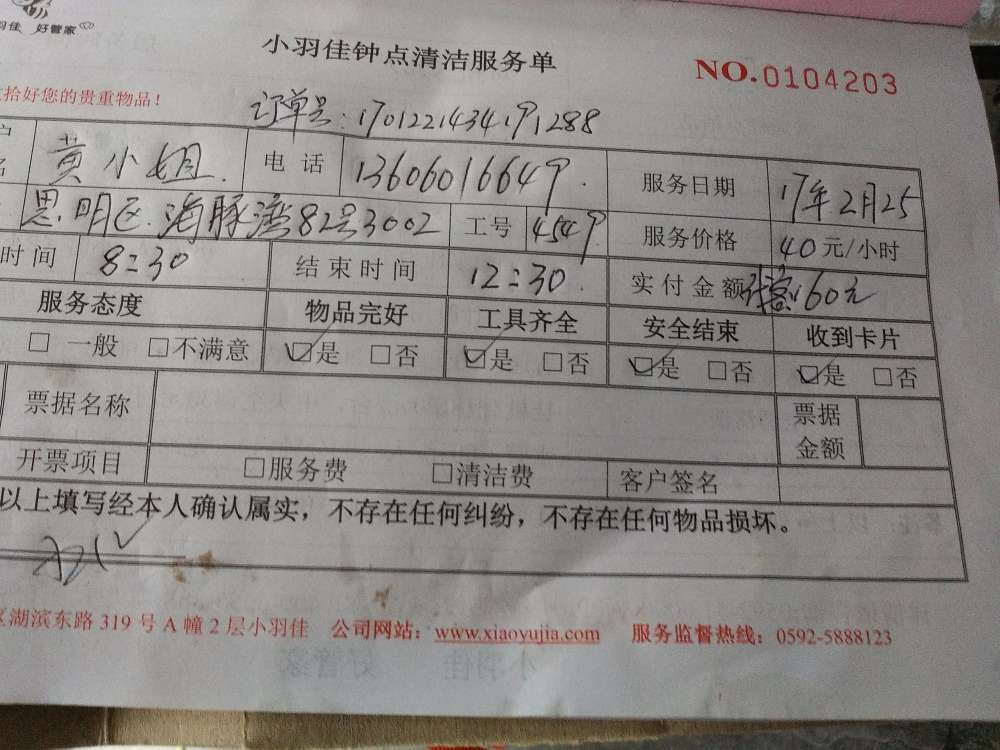 羽佳 好管家
小羽佳钟点清洁服务单
NO.0104203
拾好您的贵重物品!
订单号:1701221434191288
黄小姐 电话 13606016649 服务日期 17年2月25
思明区海豚湾82号3002 工号 4549 服务价格 40元/小时
时间 8:30 结束时间 12:30 实付金额 160元
服务态度 物品完好 工具齐全 安全结束 收到卡片
□ 一般 □不满意 ☑是 □否 ☑是 □否 ☑是 □否 ☑是 □否
票据名称 票据金额
开票项目 □服务费 □清洁费 客户签名
以上填写经本人确认属实,不存在任何纠纷,不存在任何物品损坏。
区湖滨东路 319 号 A 幢 2 层小羽佳 公司网站:www.xiaoyujia.com 服务监督热线:0592-5888123